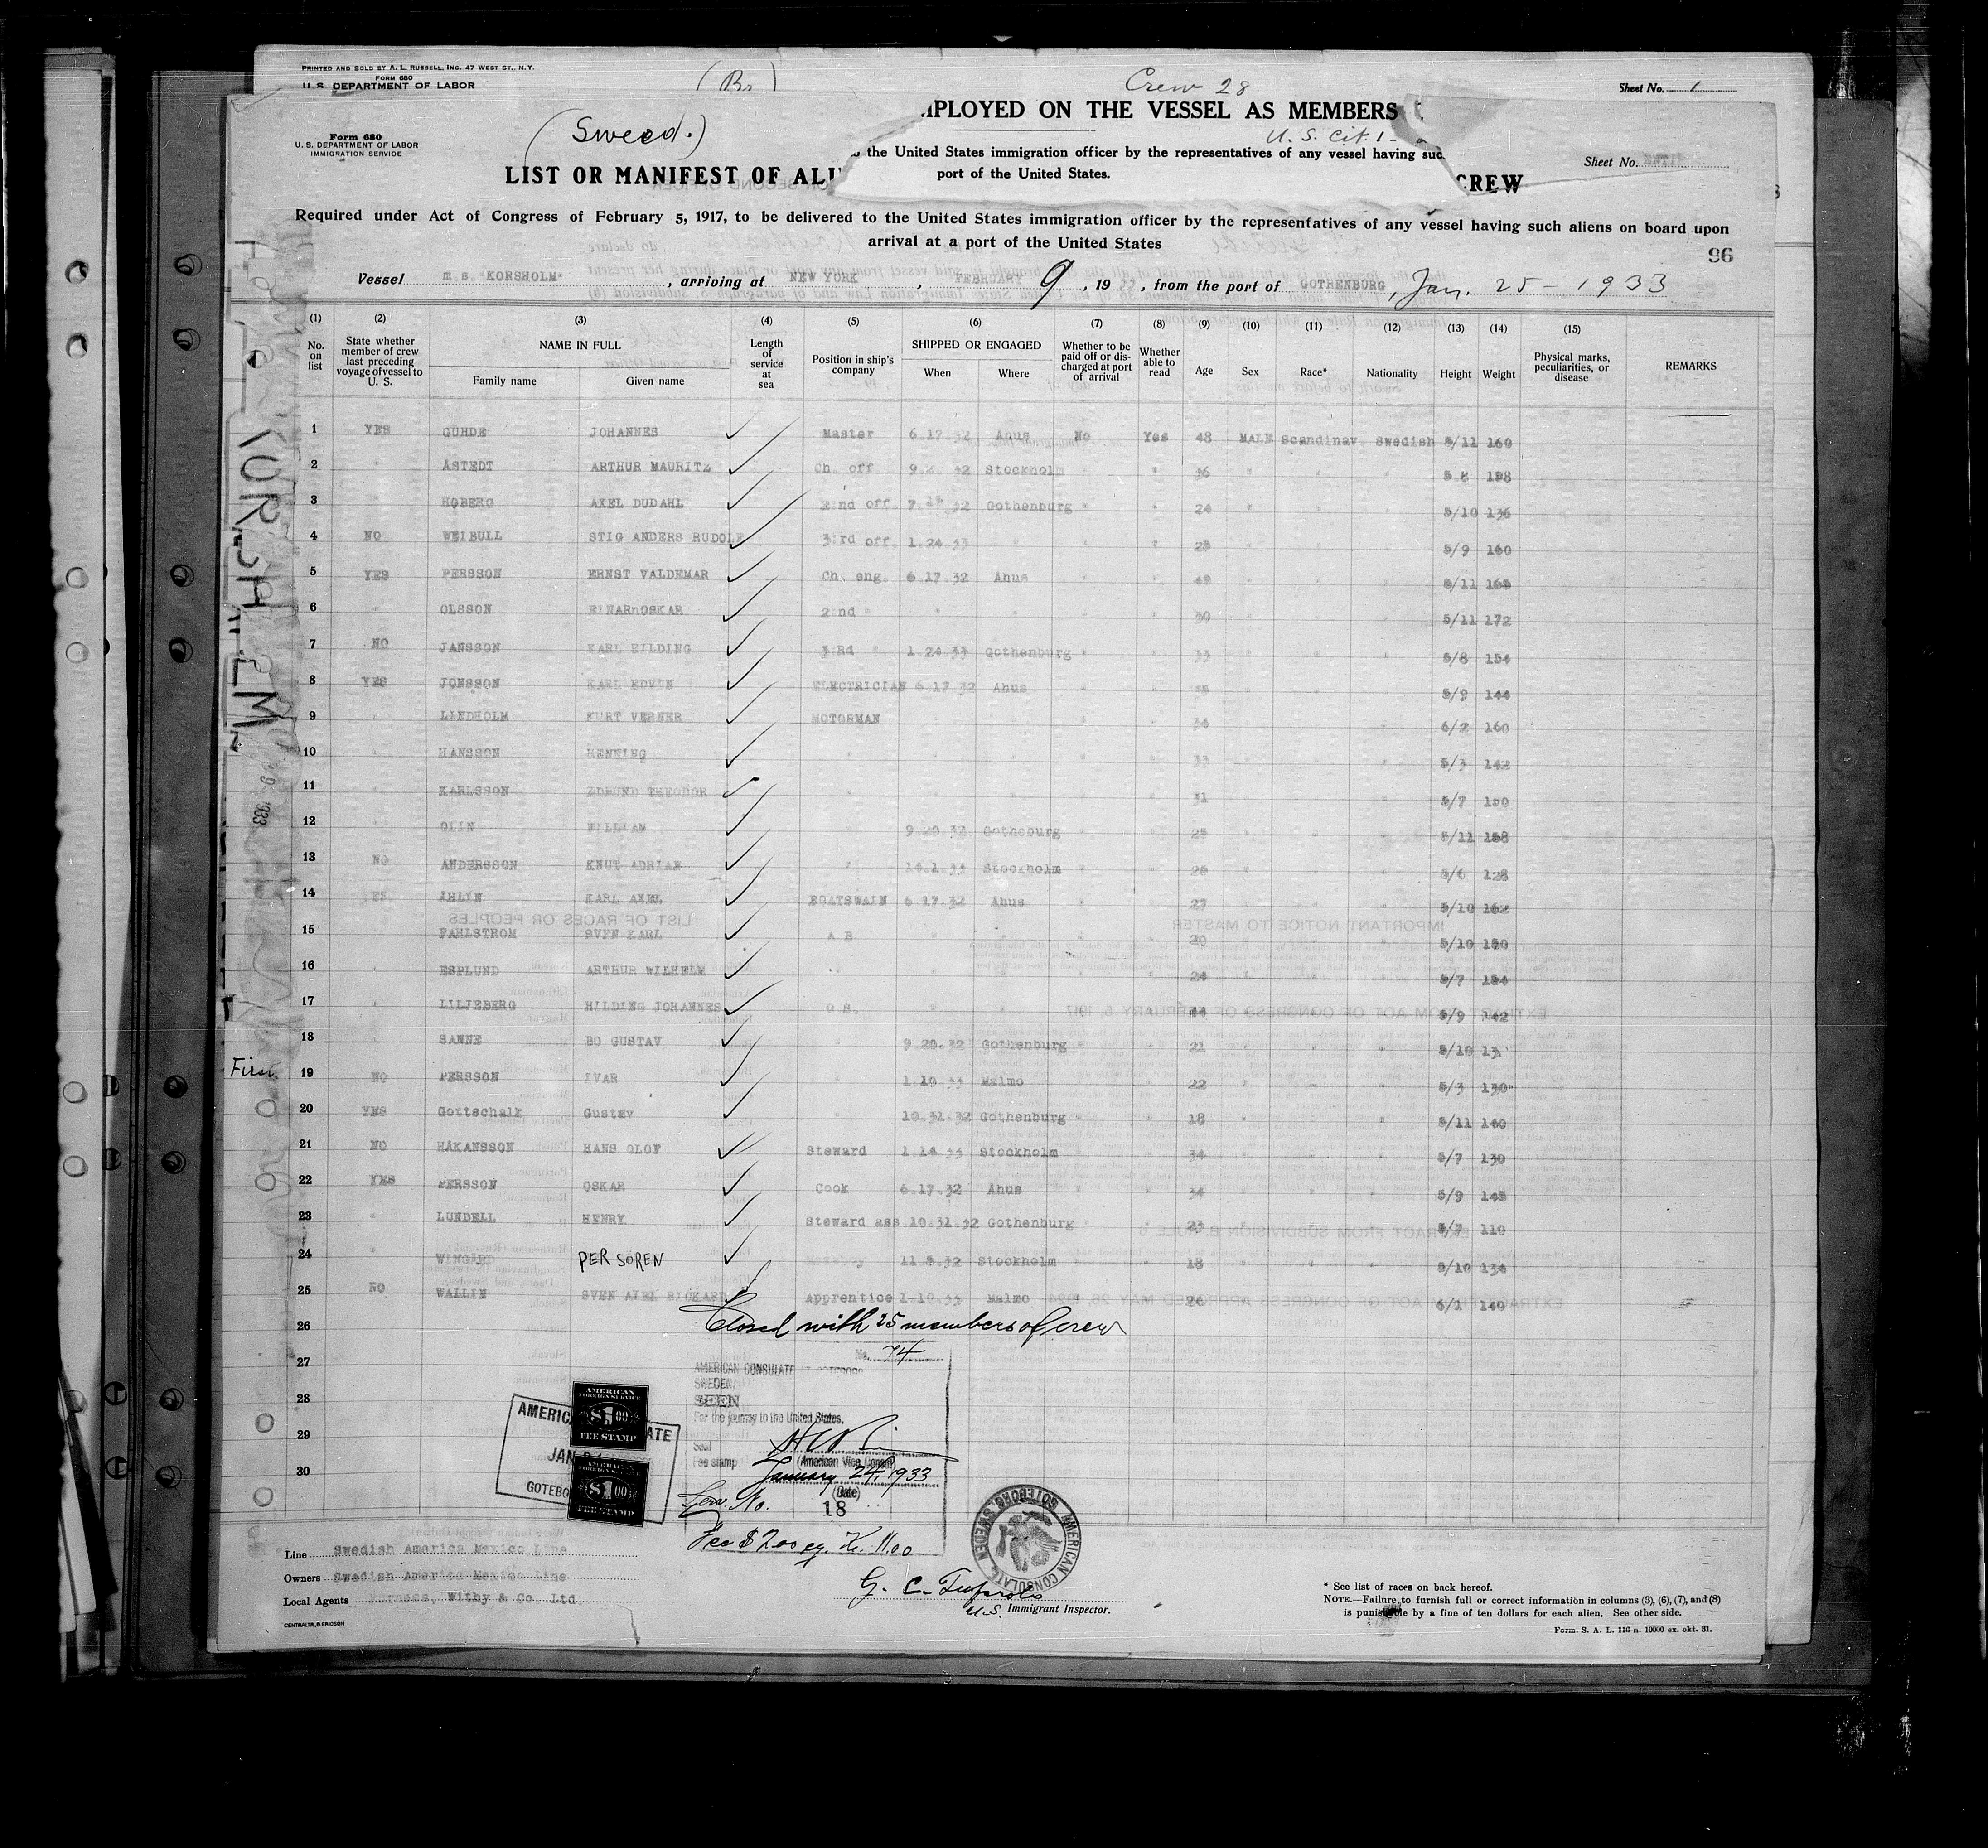 PRINTED AND SOLD BY A. L. RUSSELL, INC. 47 WEST ST., N.Y.
FORM 680
U. S. DEPARTMENT OF LABOR
(Br)
Crew 28
Sheet No. 1
MPLOYED ON THE VESSEL AS MEMBERS
U. S. Cit. 1
the United States immigration officer by the representatives of any vessel having suc
port of the United States.
Form 680
U. S. DEPARTMENT OF LABOR
IMMIGRATION SERVICE
(Sweed.)
Sheet No.
LIST OR MANIFEST OF ALI
CREW
Required under Act of Congress of February 5, 1917, to be delivered to the United States immigration officer by the representatives of any vessel having such aliens on board upon
arrival at a port of the United States
96
Vessel m.s. "KORSHOLM", arriving at NEW YORK, FEBRUARY 9, 19, from the port of GOTHENBURG, Jan. 25 - 1933
(1) (2) (3) (4) (5) (6) (7) (8) (9) (10) (11) (12) (13) (14) (15)
No. on list
State whether member of crew last preceding voyage of vessel to U. S.
NAME IN FULL
Family name
Given name
Length of service at sea
Position in ship's company
SHIPPED OR ENGAGED
When
Where
Whether to be paid off or discharged at port of arrival
Whether able to read
Age
Sex
Race*
Nationality
Height
Weight
Physical marks, peculiarities, or disease
REMARKS
1 YES GUHDE JOHANNES Master 6.17.32 Ahus No Yes 48 MALE Scandinav. Swedish 5/11 160
2 " ÅSTEDT ARTHUR MAURITZ Ch. off 32 Stockholm " " 36 " " " 5 8
3 HOBERG AXEL DUDAHL 2nd off 32 Gothenburg " " 24 " " " 5/10 136
4 NO WEIBULL STIG ANDERS RUDOLF 3rd off 1.24.33 " " " " " " 5/9 160
5 YES PERSSON ERNST VALDEMAR Ch. eng. 6.17.32 Ahus " " " " " 5/11
6 " OLSSON EINAR OSKAR 2nd " " " " " 30 " " " 5/11 172
7 NO JANSSON KARL HILDING 3Rd " 1.24.33 Gothenburg " " 33 " " " 5/8 154
8 YES JONSSON KARL EDVIN ELECTRICIAN 6.17.32 Ahus " " " " " 5/9 144
9 " LINDHOLM KURT VERNER MOTORMAN 34 " " 6/2 160
10 " HANSSON HENNING " " " " " 33 " " " 5/3 142
11 " KARLSSON EDMUND THEODOR " " " " 31 " " " 5/7
12 " OLIN WILLIAM " 9.20.32 Gotheburg " " 25 " " " 5/11
13 NO ANDERSSON KNUT ADRIAN " 33 Stockholm " " " " " 5/6 128
14 YES ÅHLIN KARL AXEL BOATSWAIN 6.17.32 Ahus " " 27 " " " 5/10 162
15 PAHLSTROM SVEN KARL A.B " " " " " " " 5/10
16 ESPLUND ARTHUR WILHELM " " " " 24 " " " 5/7 154
17 " LILJEBERG HILDING JOHANNES O.S. " " " " 5/9 142
18 SANNE BO GUSTAV " 9.20.32 Gothenburg " " 21 " " " 5/10
19 NO PERSSON IVAR " 1.10.33 Malmo " " 22 " " " 5/3 130
20 YES Gottschalk Gustav " 10.31.32 Gothenburg " " 18 " " " 5/11 140
21 NO HÅKANSSON HANS OLOF Steward 1.14.33 Stockholm " " 34 " " " 5/7 130
22 YES PERSSON OSKAR Cook 6.17.32 Ahus " " 34 " " " 5/9
23 " LUNDELL HENRY Steward ass. 10.31.32 Gothenburg " " 23 5/7 110
24 " WINGÅRD PER SOREN 32 Stockholm " " 18 " " " 5/10 134
25 NO WALLIN SVEN AXEL RICKARD Apprentice 1.10.33 Malmo 6/1 140
First
26
Closed with 25 members of crew
27
28
29
30
No. 74
AMERICAN CONSULATE
SWEDEN
SEEN
For the journey to the United States.
Seal
Fee stamp
(American Vice Consul)
January 24, 1933
(Date)
No. 18
Fee $2.00 eq. Kr. 11.00
AMERICAN
FOREIGN SERVICE
$1.00
FEE STAMP
AMERICAN
FOREIGN SERVICE
$1.00
FEE STAMP
AMERIC ATE
JAN
GOTEBO
AMERICAN CONSULATE
GOTEBORG, SWEDEN
Line Swedish America Mexico Line
Owners Swedish America Mexico Line
Local Agents Withy & Co. Ltd
CENTRALTR, B. ERICSON
G. C.
U.S. Immigrant Inspector.
* See list of races on back hereof.
NOTE.—Failure to furnish full or correct information in columns (3), (6), (7), and (8)
is punishable by a fine of ten dollars for each alien. See other side.
Form. S. A. L. 116 n. 10000 ex. okt. 31.